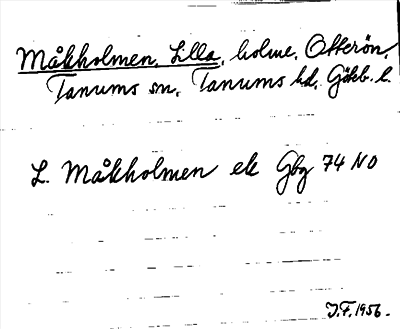 Måkholmen, Lilla, holme, Otterön,
Tanums sn, Tanums hd, Götb. l.
L. Måkholmen ek Gbg 74 NO
J.F. 1956.